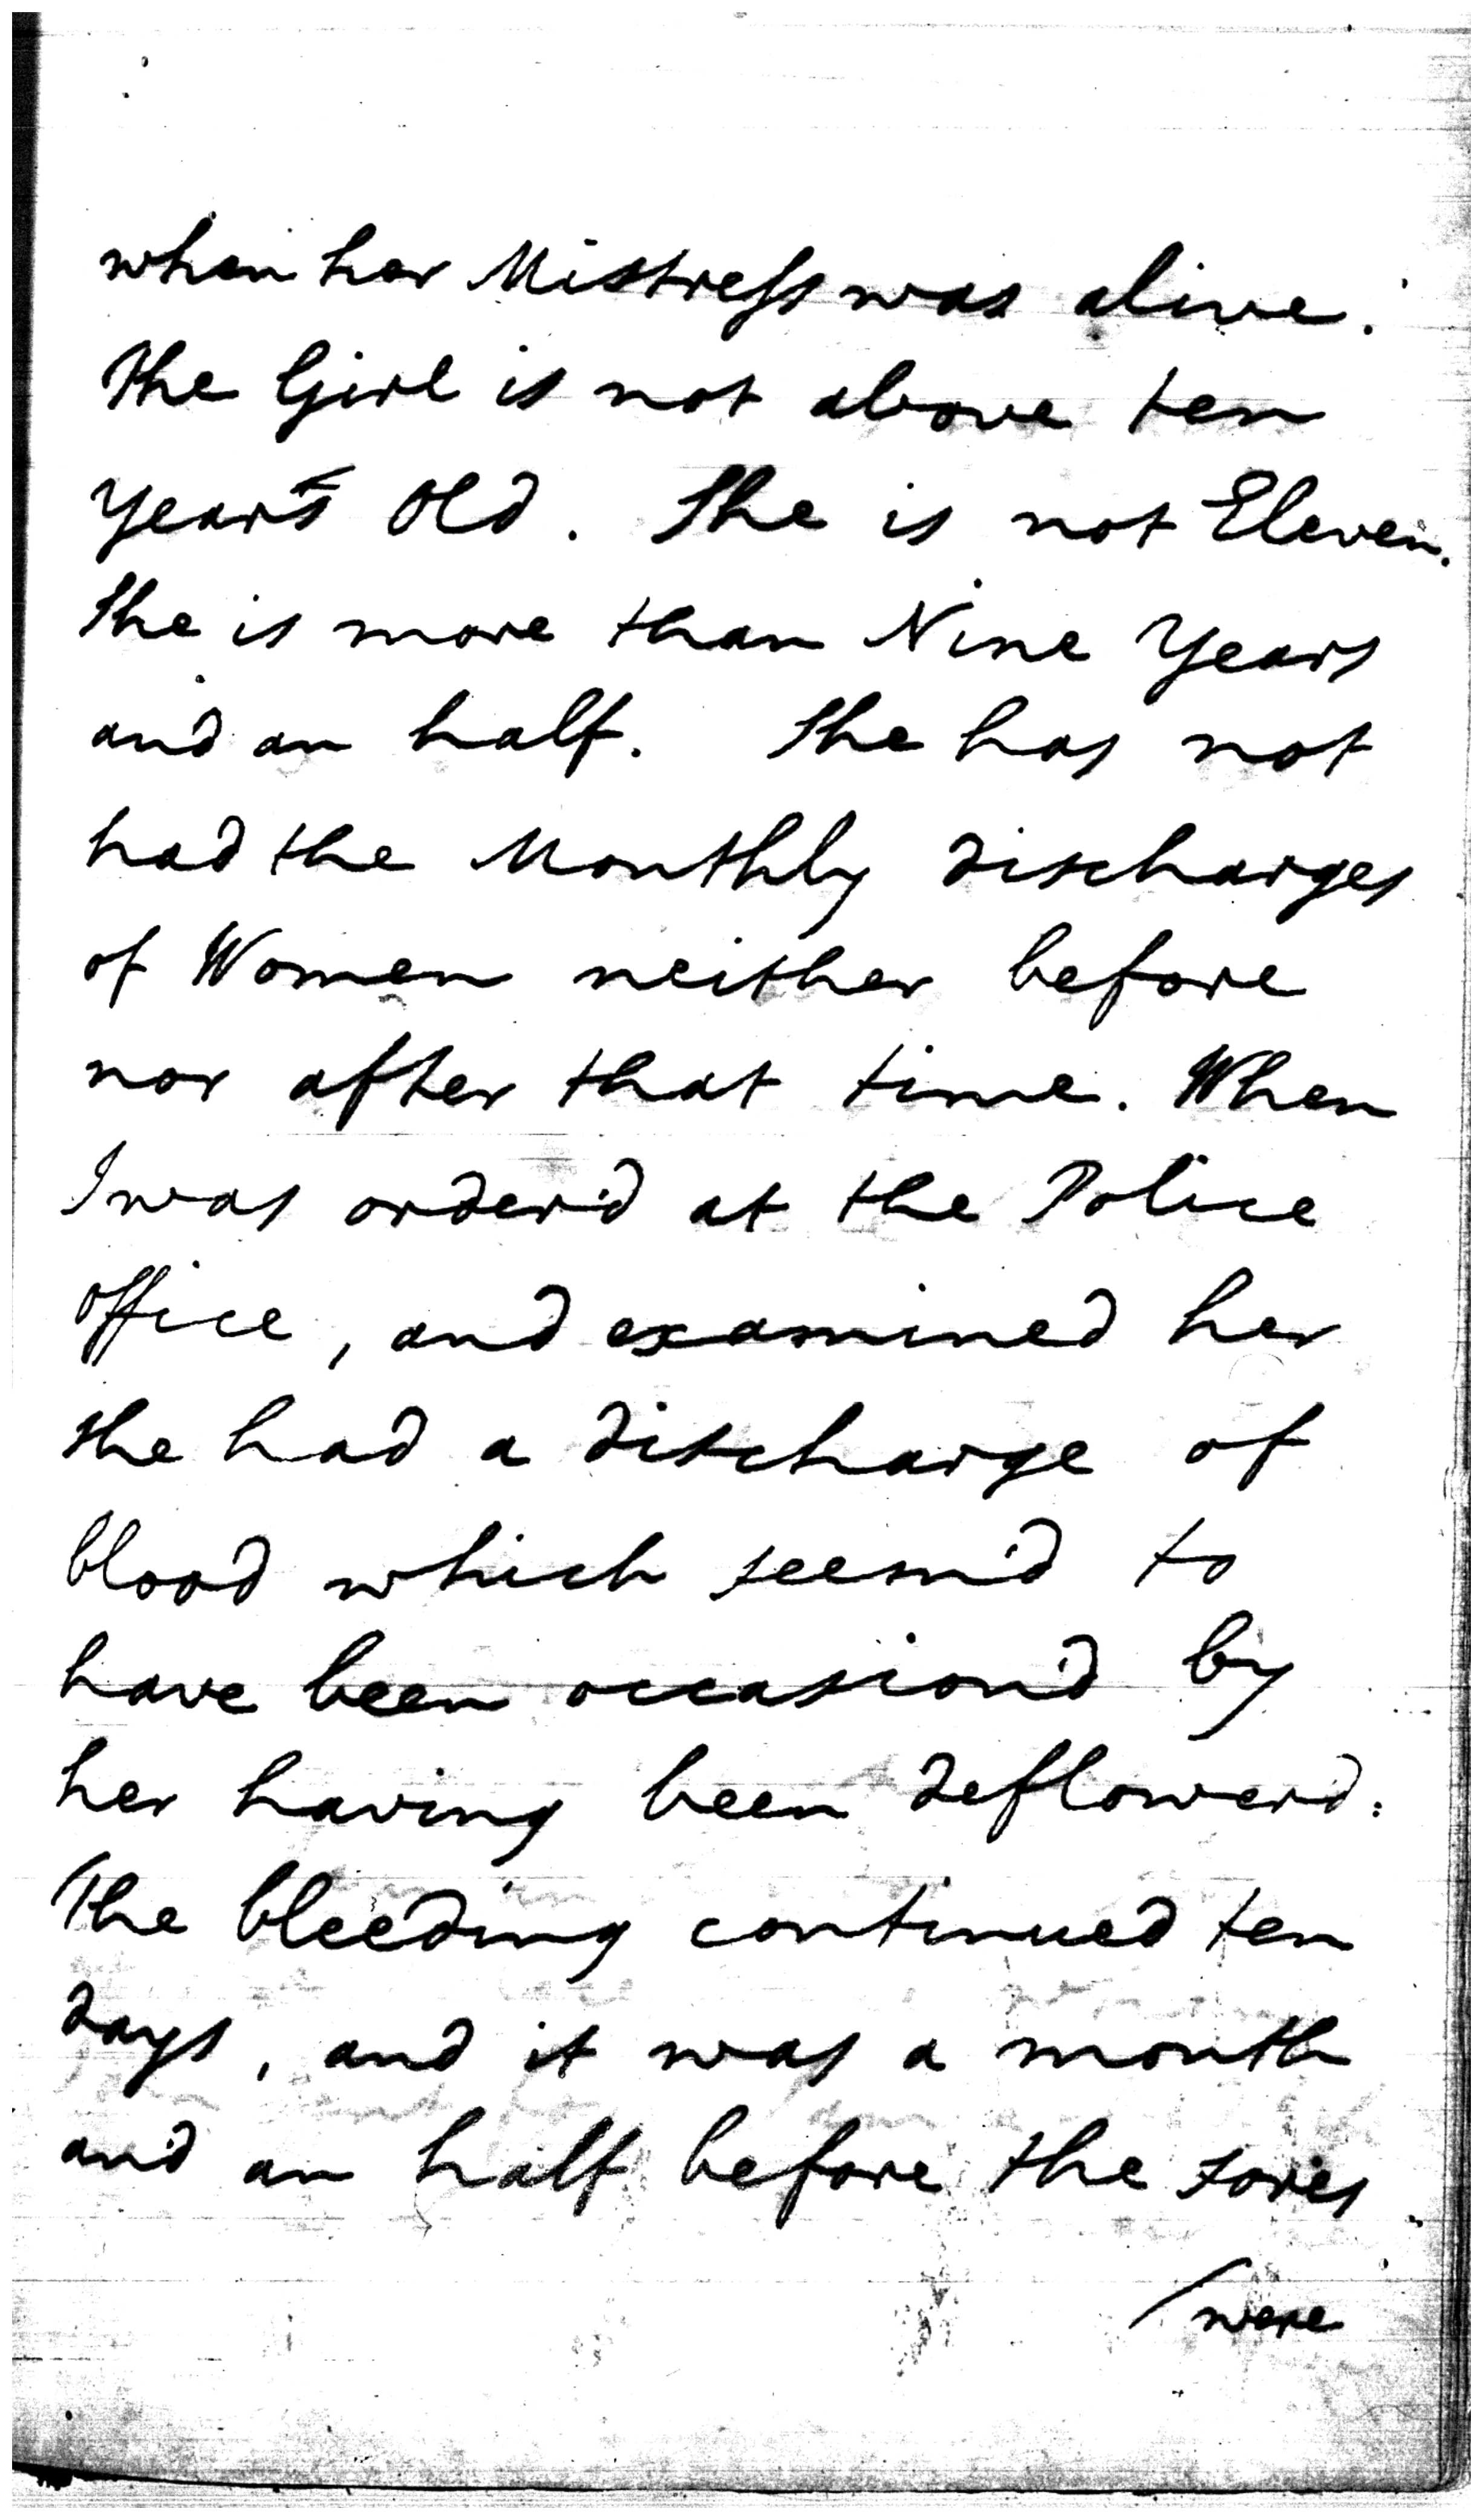 when her Mistress was alive.
The Girl is not above ten
years old. She is not Eleven.
She is more than Nine years
and an half. She has not
had the Monthly discharges
of Women neither before
nor after that time. When
I was order'd at the Police
office, and examined her
she had a discharge of
blood which seem'd to
have been occasion'd by
her having been deflower'd:
The bleeding continued ten
days, and it was a month
and an half before the sores
/were